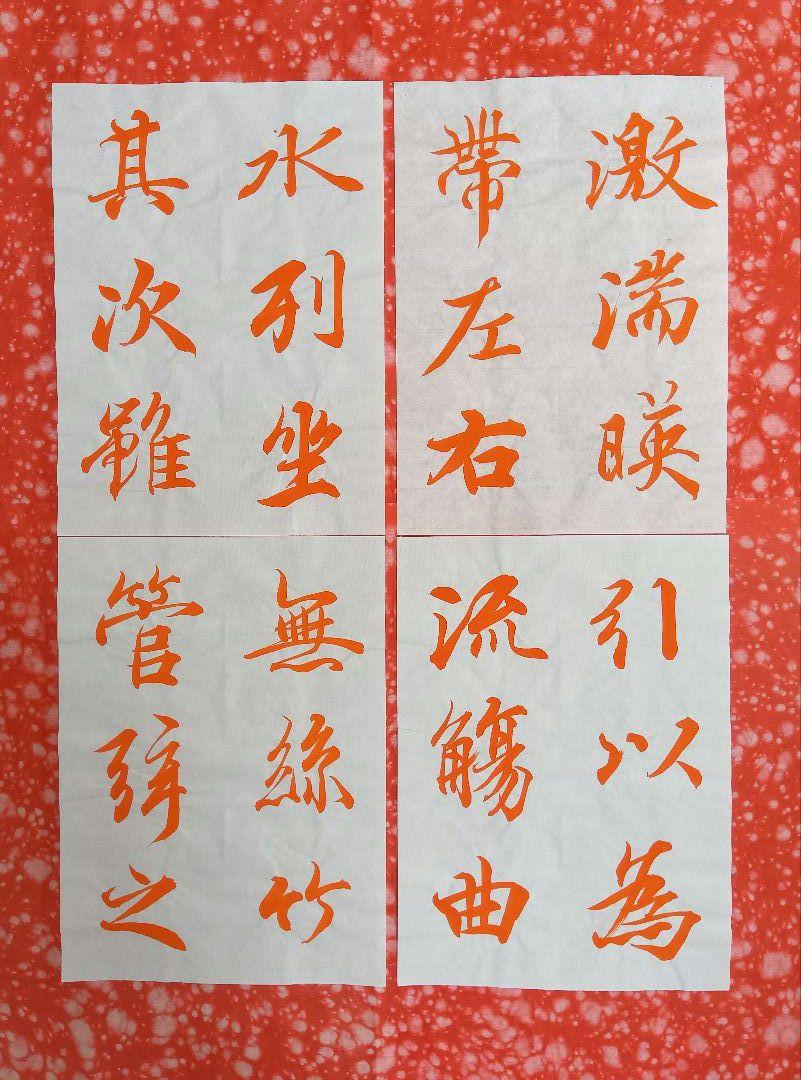 激湍暎
帶左右
引以為
流觴曲
水列坐
其次雖
無絲竹
管弦之